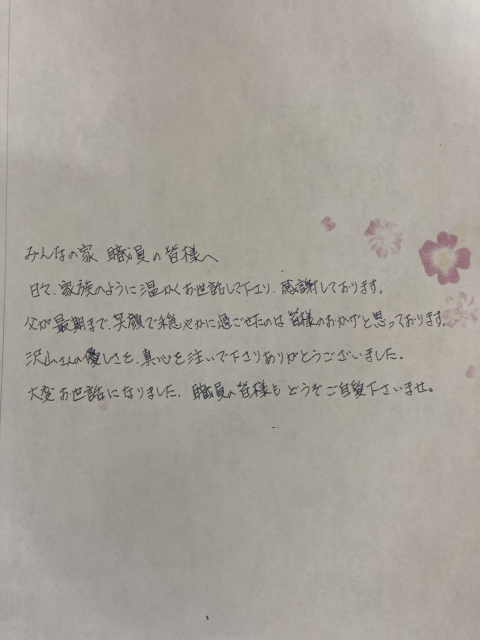 みんなの家 職員の皆様へ
日々、家族のように温かくお世話して下さり、感謝しております。
父が最期まで、笑顔で穏やかに過ごせたのは皆様のおかげと思っております。
沢山の優しさを、真心を注いで下さりありがとうございました。
大変お世話になりました。職員の皆様もどうぞご自愛下さいませ。